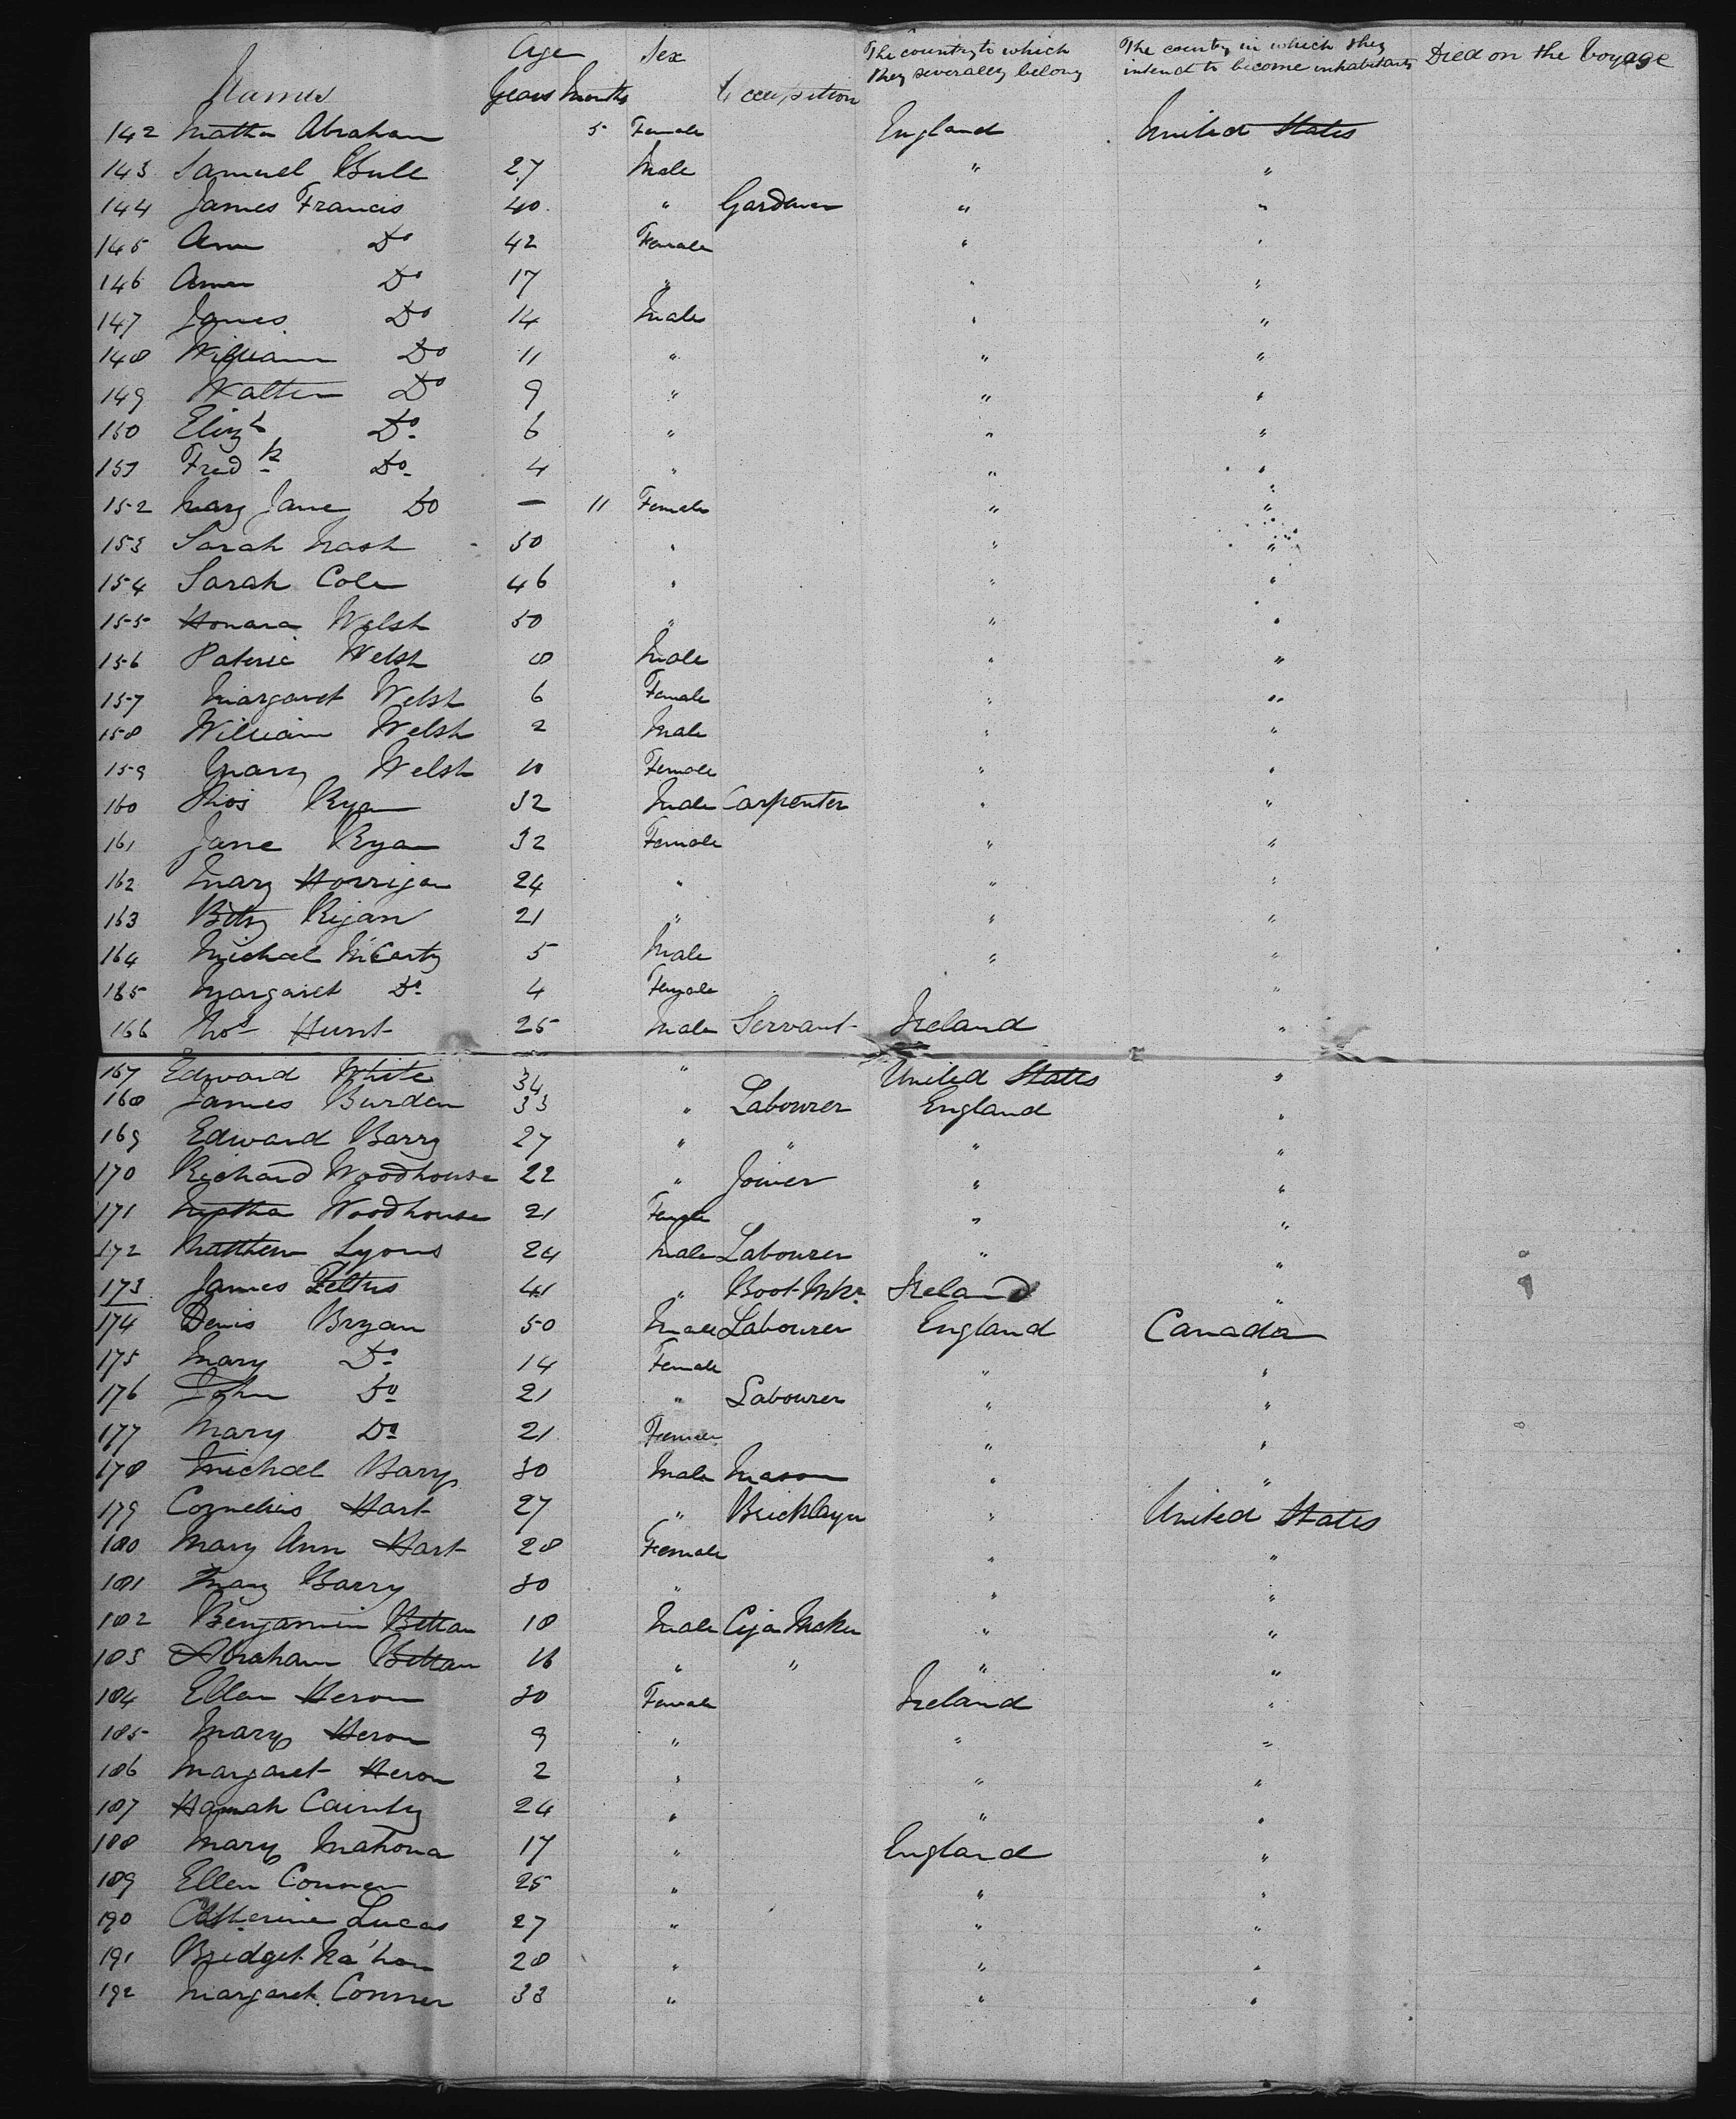 Age Sex The country to which The country in which they Died on the Voyage
Names Years Months Occupation they severally belong intend to become inhabitants
142 Abraham 5 Female England United States
143 Samuel Bull 27 Male " "
144 James Francis 40 " Gardener " "
145 Ann Do 42 Female " "
146 Do 17 " " "
147 James Do 14 Male " "
148 William Do 11 " " "
149 Walter Do 9 " " "
150 Elizh Do 6 " " "
151 Fredk Do 4 " " "
152 Mary Jane Do — 11 Female " "
153 Sarah Nash 30 " " "
154 Sarah Cole 46 " " "
155 Honara Welsh 30 " " "
156 Welsh 8 Male " "
157 Margaret Welsh 6 Female " "
158 William Welsh 2 Male " "
159 Mary Welsh 10 Female " "
160 Thos Ryan 32 Male Carpenter " "
161 Jane Ryan 32 Female " "
162 Mary Horrigan 24 " " "
163 Betsy 21 " " "
164 Michael McCarty 5 Male " "
165 Margaret Do 4 Female "
166 Thos Hunt 25 Male Servant Ireland "
167 Edward White 34 " United States "
168 James Burden 33 " Labourer England "
169 Edward Barry 27 " " " "
170 Richard Woodhouse 22 " Joiner " "
171 Woodhouse 21 Female " "
172 Matthew Lyons 24 Male Labourer " "
173 James 41 " Boot Mkr Ireland "
174 Denis Bryan 50 Male Labourer England Canada
175 Mary Do 14 Female " "
176 John Do 21 " Labourer " "
177 Mary Do 21 Female " "
178 Michael Bary 30 Male Mason " "
179 Cornelius Hart 27 " Bricklayer " United States
180 Mary Ann Hart 28 Female " "
181 Mary Barry 30 " " "
182 Benjamin 18 Male Cigar Maker " "
183 Abraham 16 " " " "
184 Ellen Heron 30 Female Ireland "
185 Mary Heron 9 " " "
186 Margaret Heron 2 " " "
187 Hannah 24 " " "
188 Mary Mahona 17 " England "
189 Ellen Conner 25 " " "
190 Catherine Lucas 27 " " "
191 Bridget 28 " " "
192 Margaret Conner 33 " " "